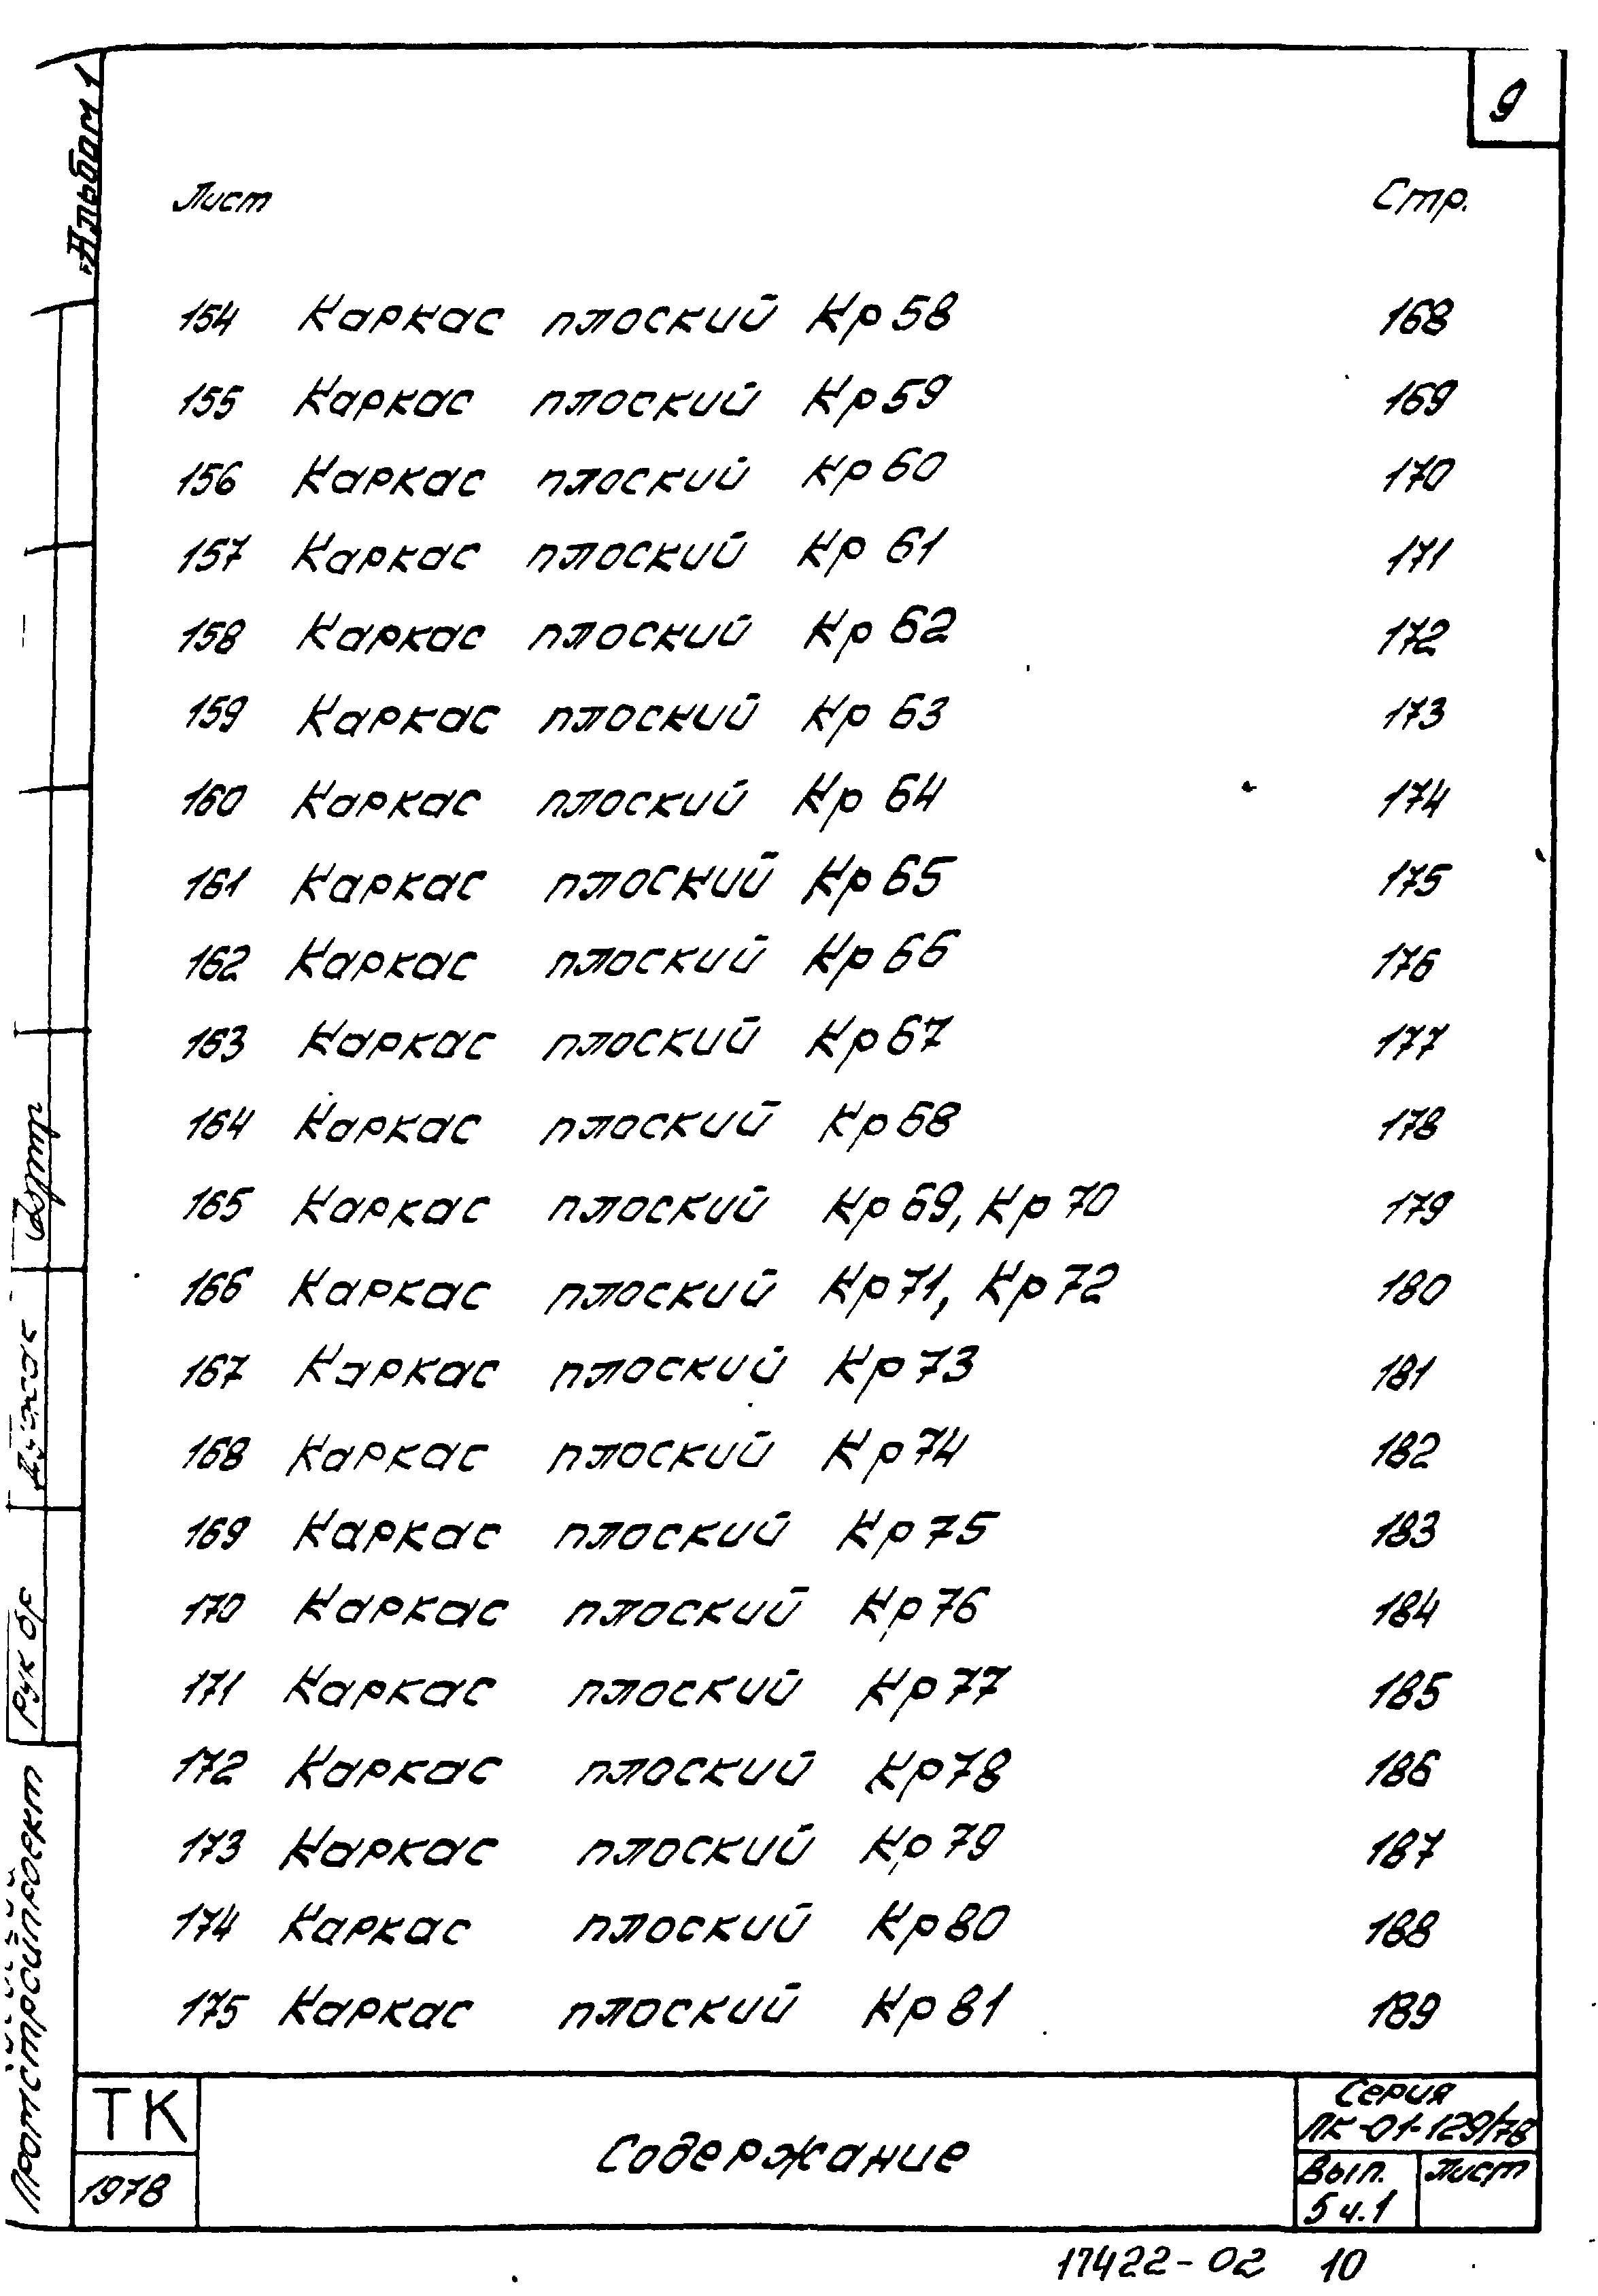 9
Альбом 1
Лист Стр.
154 Каркас плоский Кр 58 168
155 Каркас плоский Кр 59 169
156 Каркас плоский Кр 60 170
157 Каркас плоский Кр 61 171
158 Каркас плоский Кр 62 172
159 Каркас плоский Кр 63 173
160 Каркас плоский Кр 64 174
161 Каркас плоский Кр 65 175
162 Каркас плоский Кр 66 176
163 Каркас плоский Кр 67 177
164 Каркас плоский Кр 68 178
165 Каркас плоский Кр 69, Кр 70 179
166 Каркас плоский Кр 71, Кр 72 180
167 Каркас плоский Кр 73 181
168 Каркас плоский Кр 74 182
169 Каркас плоский Кр 75 183
170 Каркас плоский Кр 76 184
171 Каркас плоский Кр 77 185
172 Каркас плоский Кр 78 186
173 Каркас плоский Кр 79 187
174 Каркас плоский Кр 80 188
175 Каркас плоский Кр 81 189
Рук бр
Промстройпроект
ТК
1978
Содержание
Серия
ПК-01-129/78
Вып. Лист
5 ч.1
17422-02 10